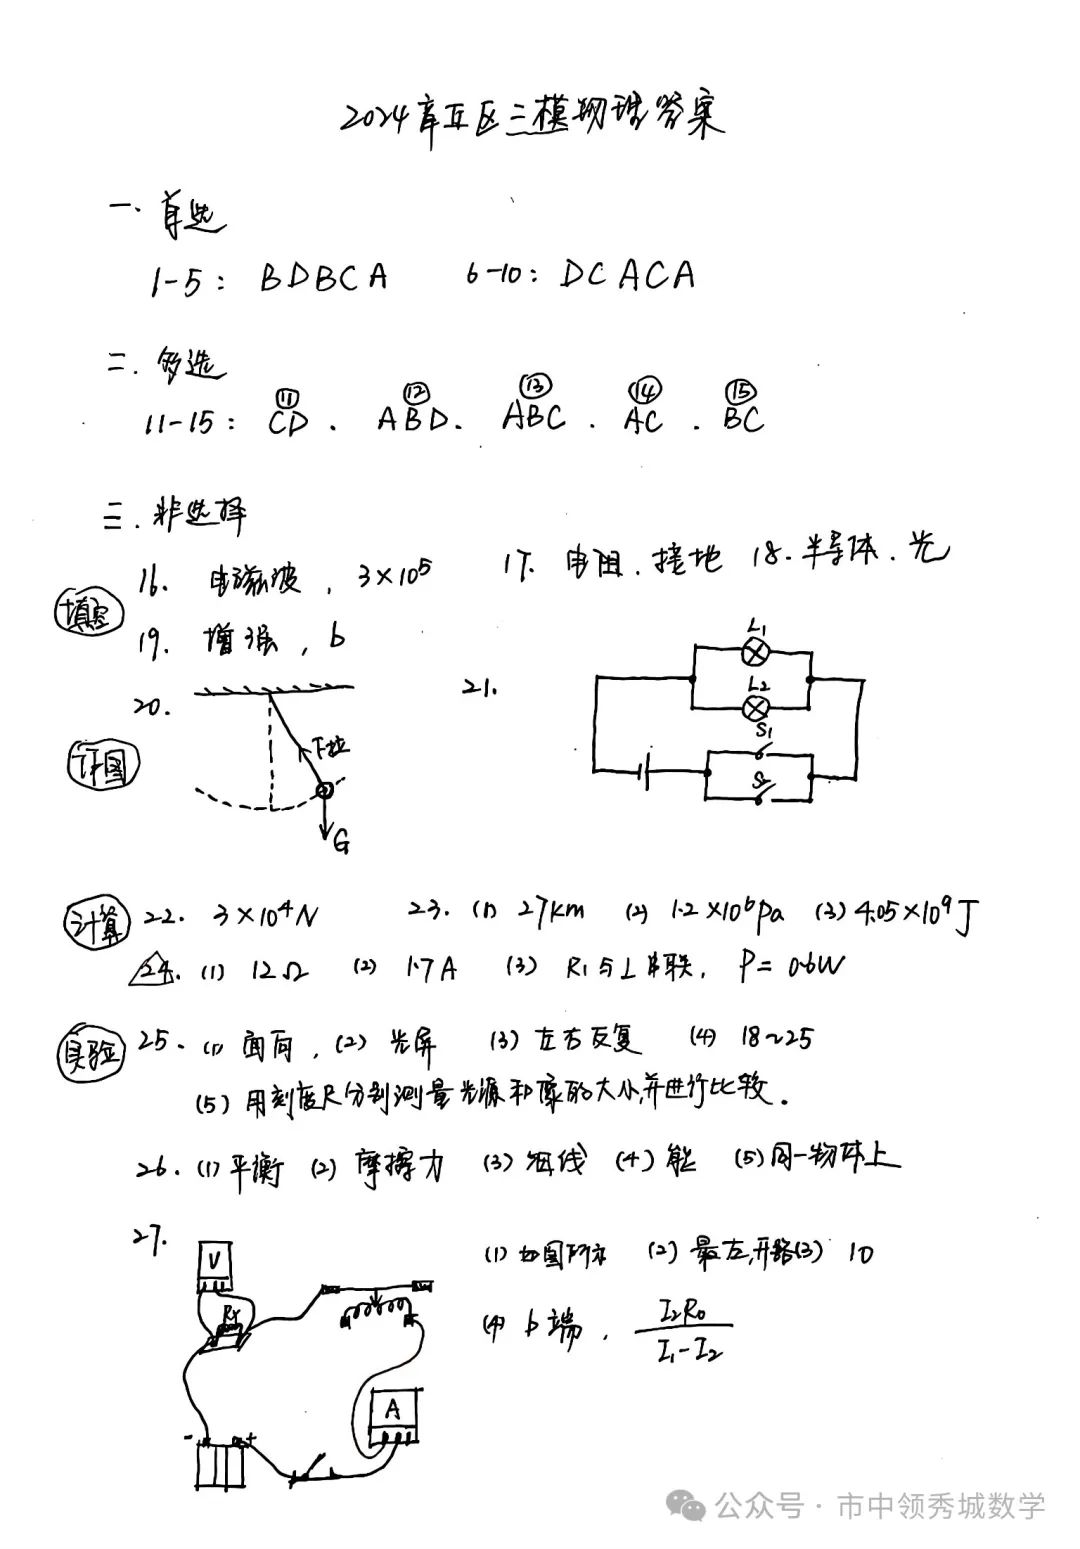 2024章丘区三模物理答案
一、单选
1-5: BDBCA 6-10: DCACA
二、多选
⑪ ⑫ ⑬ ⑭ ⑮
11-15: CD. ABD. ABC. AC. BC
三. 非选择
填空
16. 电磁波, 3×10⁵ 17. 电阻. 接地 18. 半导体. 光
19. 增强, b
作图
20. F拉 G
21. L1 L2 S1 S2
计算
22. 3×10⁴N 23. (1) 27km (2) 1.2×10⁶Pa (3) 4.05×10⁹J
24. (1) 12Ω (2) 1.7A (3) R1与L串联, P=0.6W
实验
25. (1) 面向, (2) 光屏 (3) 左右反复 (4) 18~25
(5) 用刻度尺分别测量光源和像的大小,并进行比较。
26. (1) 平衡 (2) 摩擦力 (3) 细线 (4) 能 (5) 同一物体上
27. V Rx A - +
(1) 如图所示 (2) 最左,开路 (3) 10
(4) b端, I2R0/(I1-I2)
公众号·市中领秀城数学